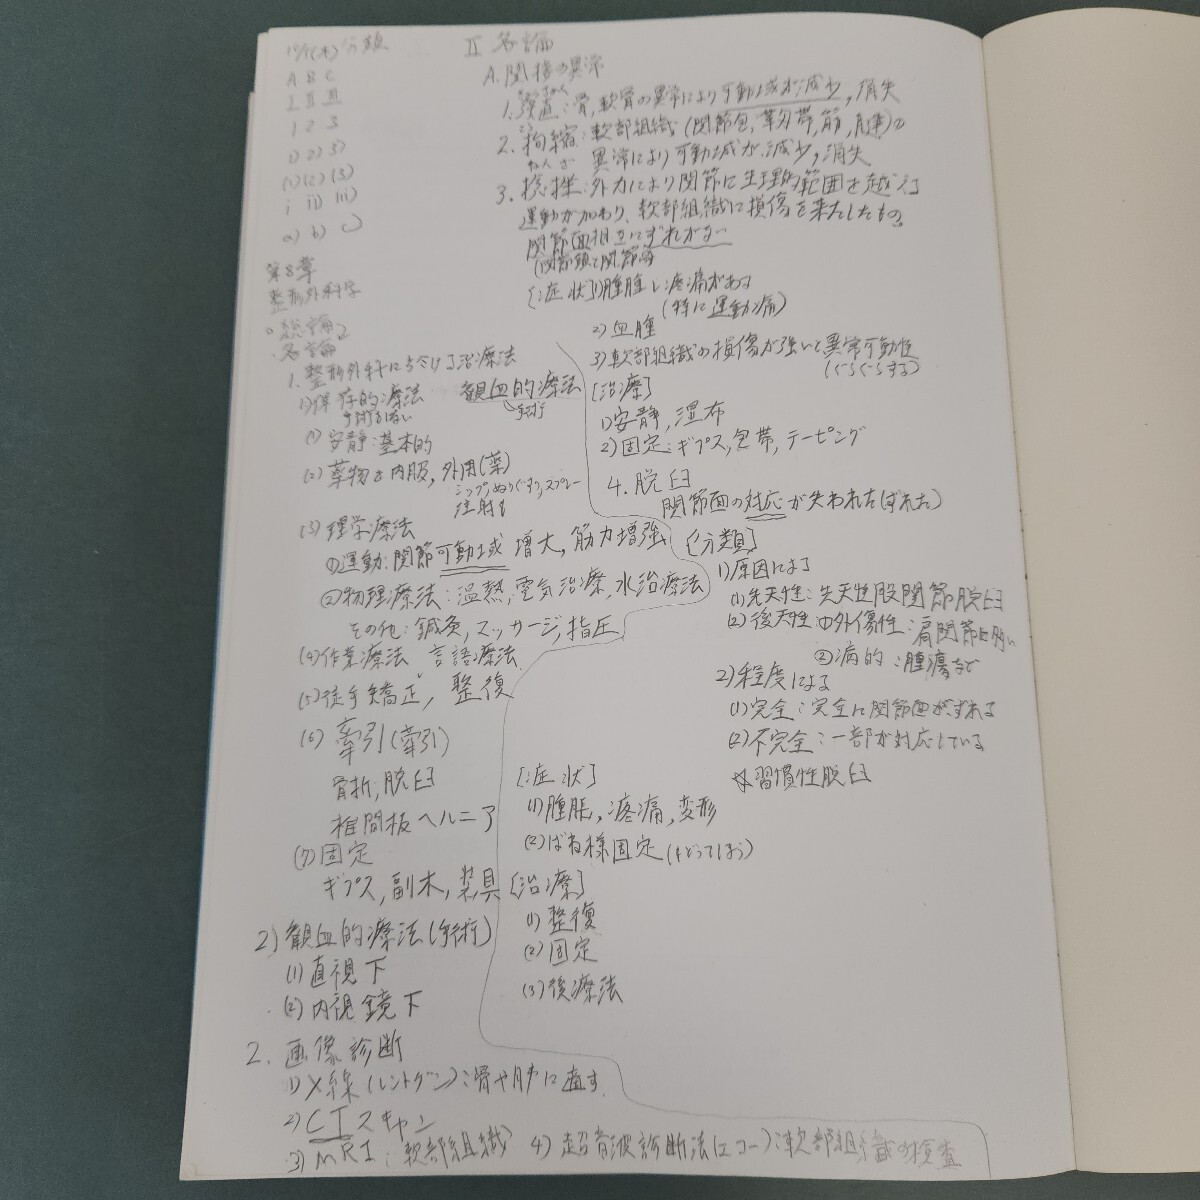 分類
A B C
I II III
1 2 3
1) 2) 3)
(1) (2) (3)
i ii) iii)
a) b) c)
第8章
整形外科学
○総論
・各論
1. 整形外科における治療法
1)保存的療法 観血的療法
手術しない 手術
(1)安静:基本的
(2)薬物を内服,外用(薬)
シップ,ぬりぐすり,スプレー
注射も
(3)理学療法
①運動:関節可動域増大,筋力増強
②物理療法:温熱,電気治療,水治療法
その他:鍼灸,マッサージ,指圧
(4)作業療法 言語療法
(5)徒手矯正,整復
(6)牽引(牽引)
骨折,脱臼
椎間板ヘルニア
(7)固定
ギプス,副木,装具
2)観血的療法(手術)
(1)直視下
(2)内視鏡下
2. 画像診断
1)X線(レントゲン):骨や肺に
2)CTスキャン
3)MRI:軟部組織 4)超音波診断法(エコー):軟部組織の検査
II 各論
A.関節の異常
1.強直:骨,軟骨の異常により可動域が減少,消失
2.拘縮:軟部組織(関節包,靭帯,筋,腱)の
異常により可動域が減少,消失
ねんざ
3.捻挫:外力により関節に生理的範囲を越える
運動が加わり、軟部組織に損傷を来たしたもの
関節面相互にずれがない
(関節頭と関節窩
[症状]1)腫脹し疼痛がある
(特に運動痛)
2)血腫
3)軟部組織の損傷が強いと異常可動性
(ぐらぐらする)
[治療]
1)安静,湿布
2)固定:ギプス,包帯,テーピング
4.脱臼
関節面の対応が失われた(ずれた)
[分類]
1)原因による
(1)先天性:先天性股関節脱臼
(2)後天性①外傷性:肩関節に多い
②病的:腫瘍など
2)程度による
(1)完全:完全に関節面がずれる
(2)不完全:一部が対応している
☆習慣性脱臼
[症状]
(1)腫脹,疼痛,変形
(2)ばね様固定(もどってしまう)
[治療]
(1)整復
(2)固定
(3)後療法